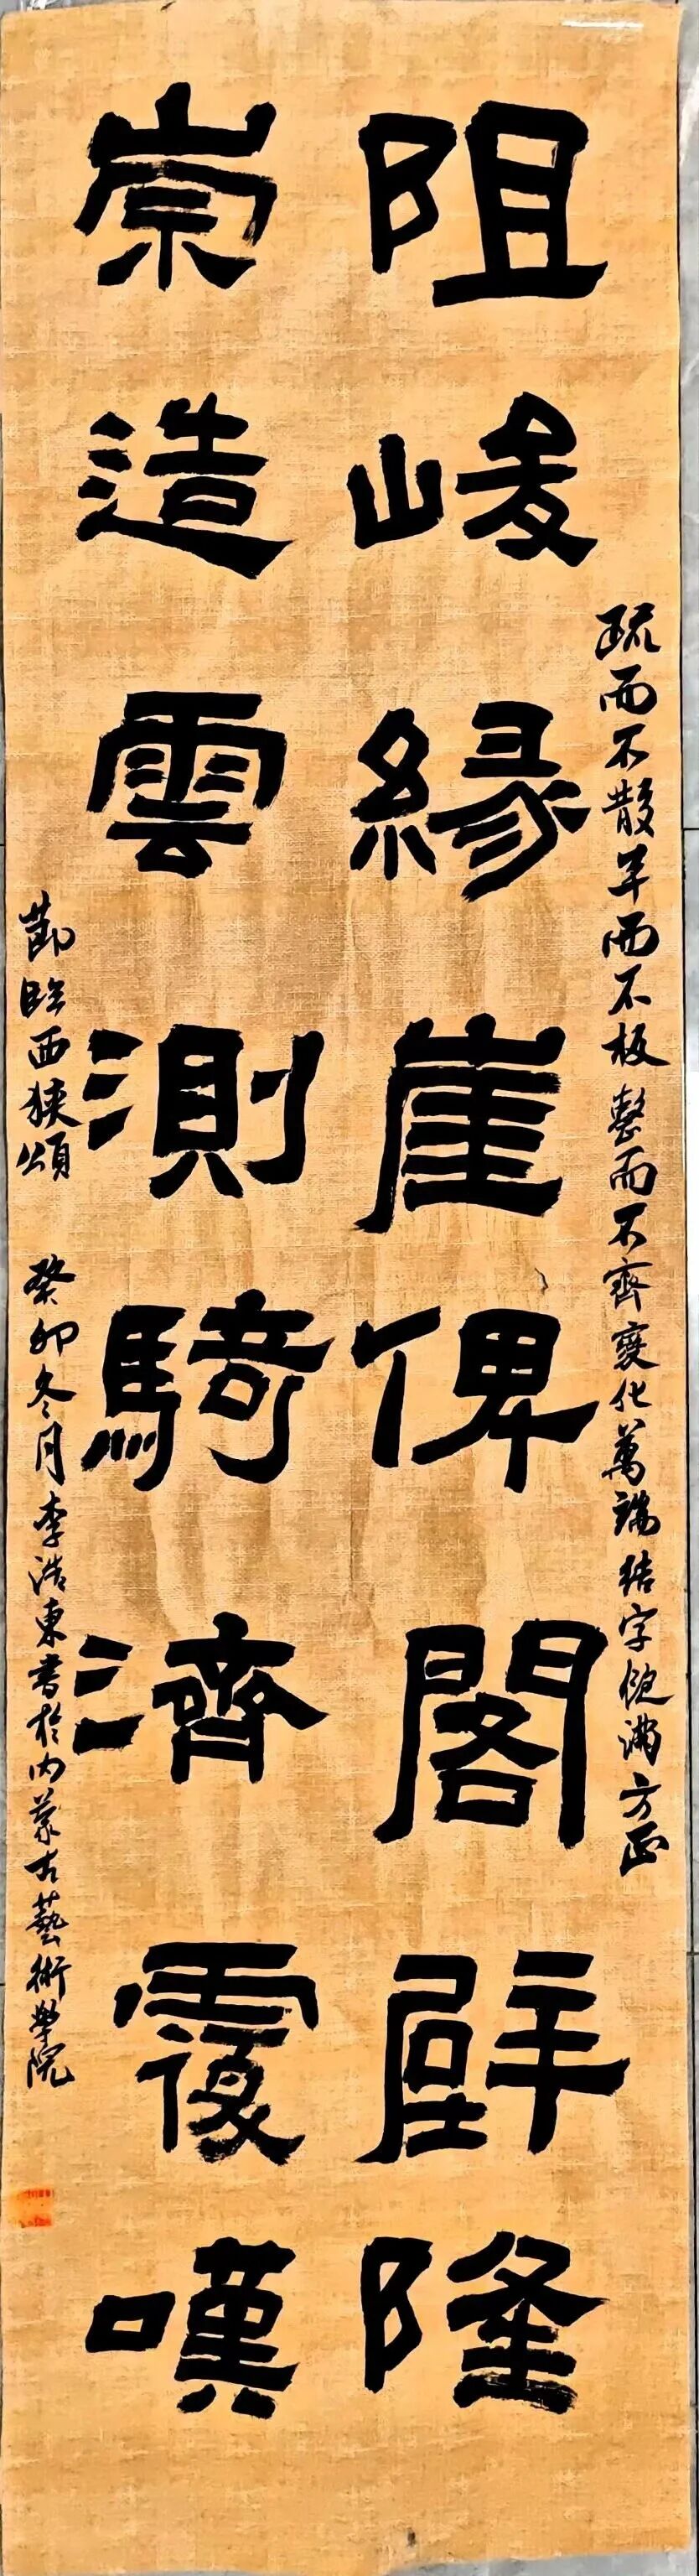 疏而不散平而不板整而不齊變化萬端结字饱满方正
阻峻緣崖俾閣壁隆
崇造雲測騎濟覆嘆
節臨西狭頌 癸卯冬月李浩東書於内蒙古藝術學院